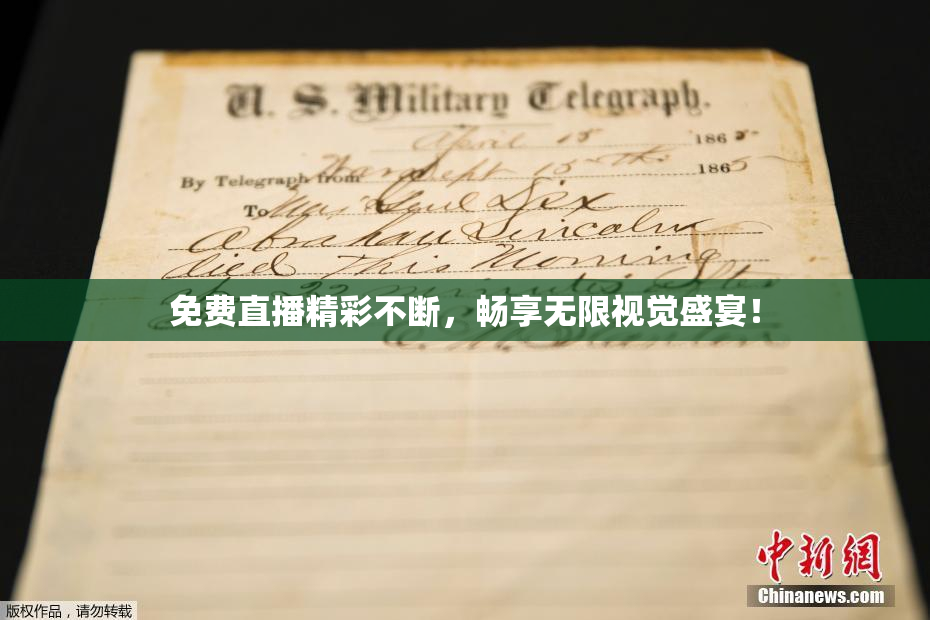 U. S. Military Telegraph.
April 15 1865
By Telegraph from War Dept 15th 1865
To Maj Genl Dix
Abraham Lincoln
died This Morning
免费直播精彩不断，畅享无限视觉盛宴！
中新网
Chinanews.com
版权作品，请勿转载